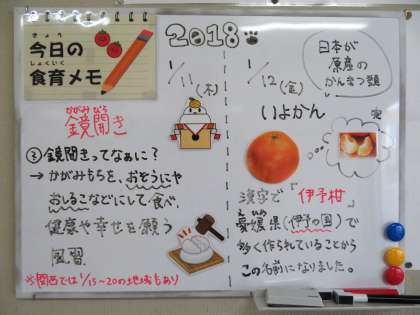 きょう
今日の
しょくいく
食育メモ
2018
1/11(木)
かがみびら
鏡開き
鏡開きってなぁに?
→かがみもちを、おぞうにや
おしることなどにして食べ、
健康や幸せを願う
風習
※関西では1/15~20の地域もあり
1/12(金)
日本が
原産の
かんきつ類
いよかん
漢字で『伊予柑』
えひめ
愛媛県(伊予の国)で
多く作られていることから
この名前になりました。